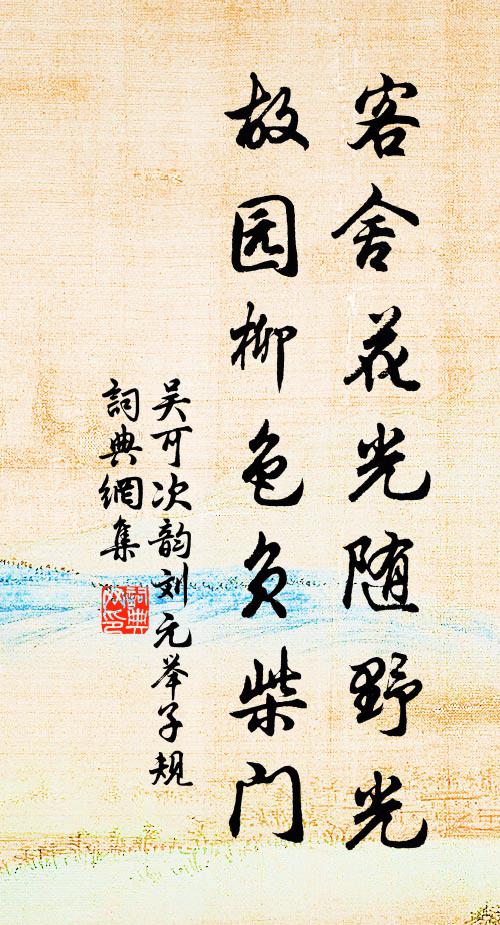 客舍花光随野光
故园柳色负柴门
吴可次韵刘元举子规
詞典網集